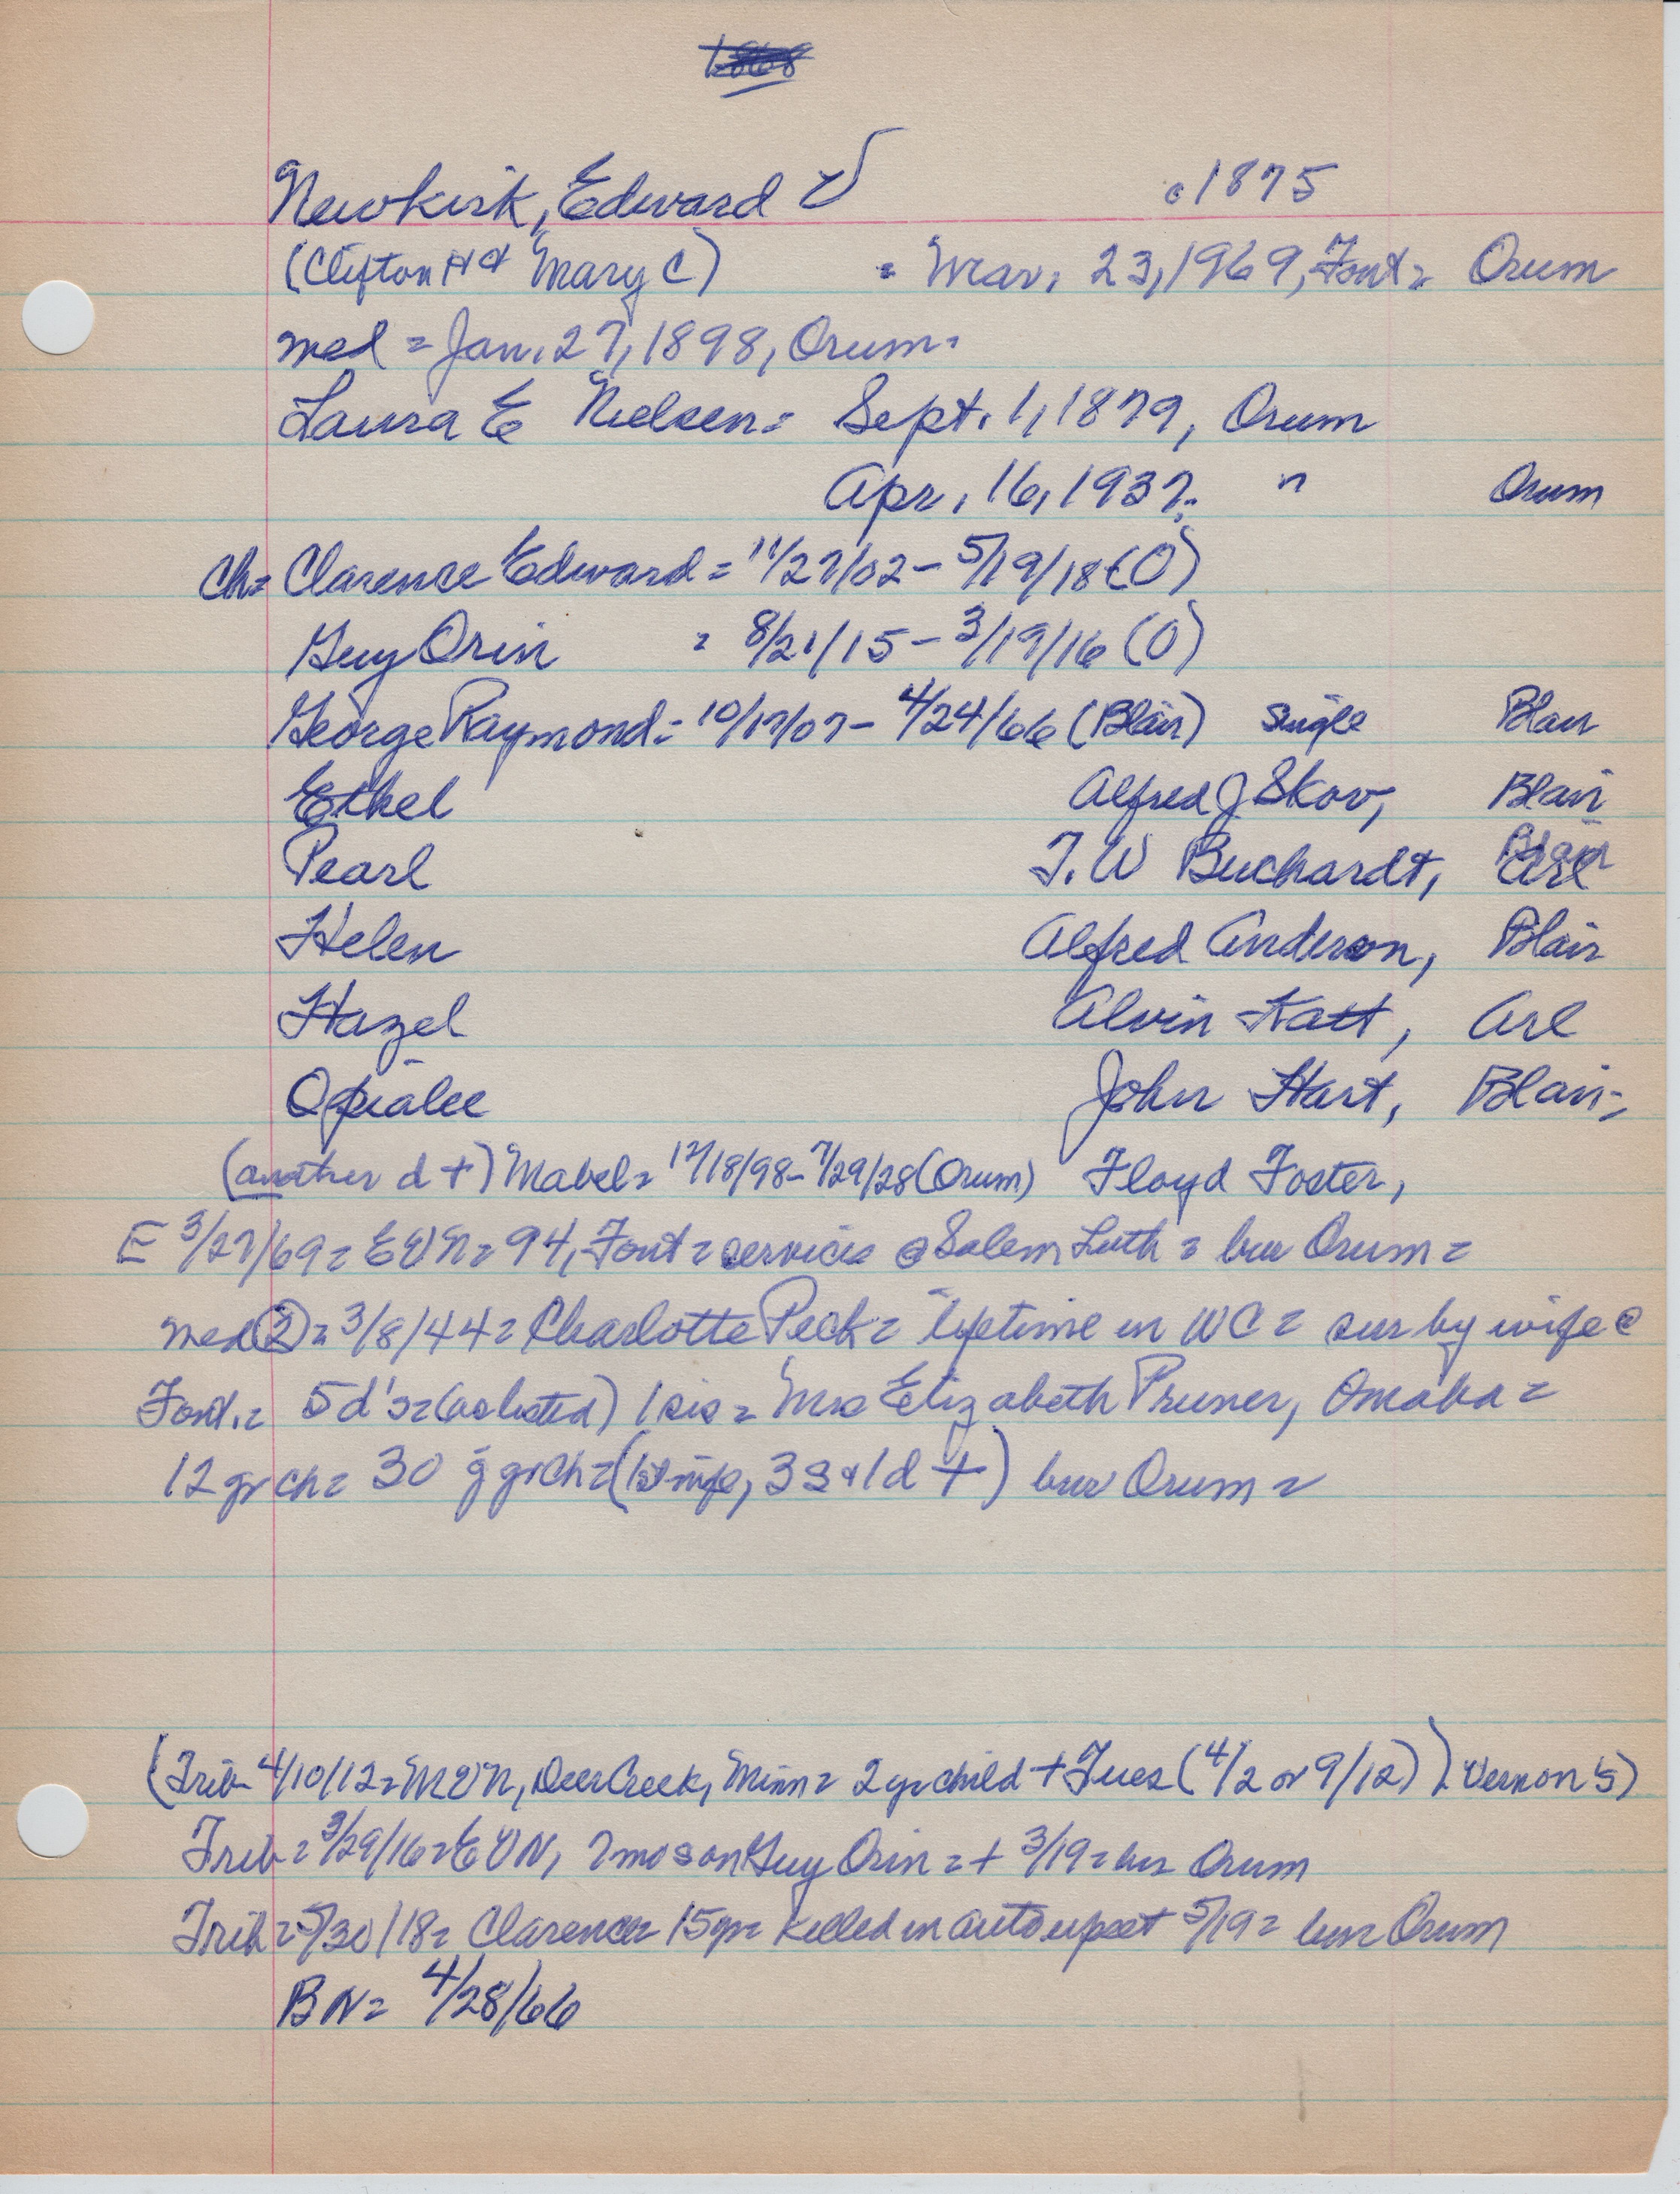 1868
Newkirk, Edward V c1875
(Clifton H & Mary C) = Mar. 23, 1969, Font= Orum
med = Jan. 27, 1898, Orum=
Laura E Nielsen= Sept. 1, 1879, Orum
Apr. 16, 1937= " Orum
Ch= Clarence Edward = 11/27/02 - 5/19/18 (O)
Guy Orin = 8/21/15 - 3/19/16 (O)
George Raymond= 10/17/07 - 4/24/66 (Blair) single Blair
Ethel Alfred J Skov, Blair
Pearl T. W Buchardt, Arl
Helen Alfred Anderson, Blair
Hazel Alvin Katt, Arl
Opialee John Hart, Blair=
(another d +) Mabel= 12/18/98 - 7/29/28 (Orum) Floyd Foster,
E 3/27/69 = EVN = 94, Font = services @ Salem Luth = bur Orum =
med (2) = 3/8/44 = Charlotte Peck = lifetime in WC = sur by wife @
Font. = 5 d's = (as listed) 1 sis = Mrs Elizabeth Pruner, Omaha =
12 gr ch = 30 g gr ch = (1st wife, 3 s & 1 d +) bur Orum =
(Trib 4/10/12 = MVN, Deer Creek, Minn = 2 yr child + Tues (4/2 or 9/12)) Vernon's)
Trib = 3/29/16 = EVN, 7 mo son Guy Orin = + 3/19 = bur Orum
Trib = 5/30/18 = Clarence = 15 yr = killed in auto upset 5/19 = bur Orum
BN = 4/28/66